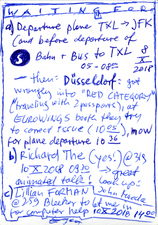 WAITING FOR
a) Departure plane TXL → JFK
(and before departure of
S Bahn + Bus to TXL 8
05 - 08 X
2018
— then: Düsseldorf: got
wrongly into "RED CATEGORY"
(traveling with 2 passports), at
EUROWINGS book they try
to correct issue (10 05), now
for plane departure 10 36
b) Richard The (yes!) @ 349
10 X 2018 09 20 → great
animated talk! look up:
c) Lillian FORMAN John
@ 259 Blacker to let me in
for computer help 10 X 2018 14 00